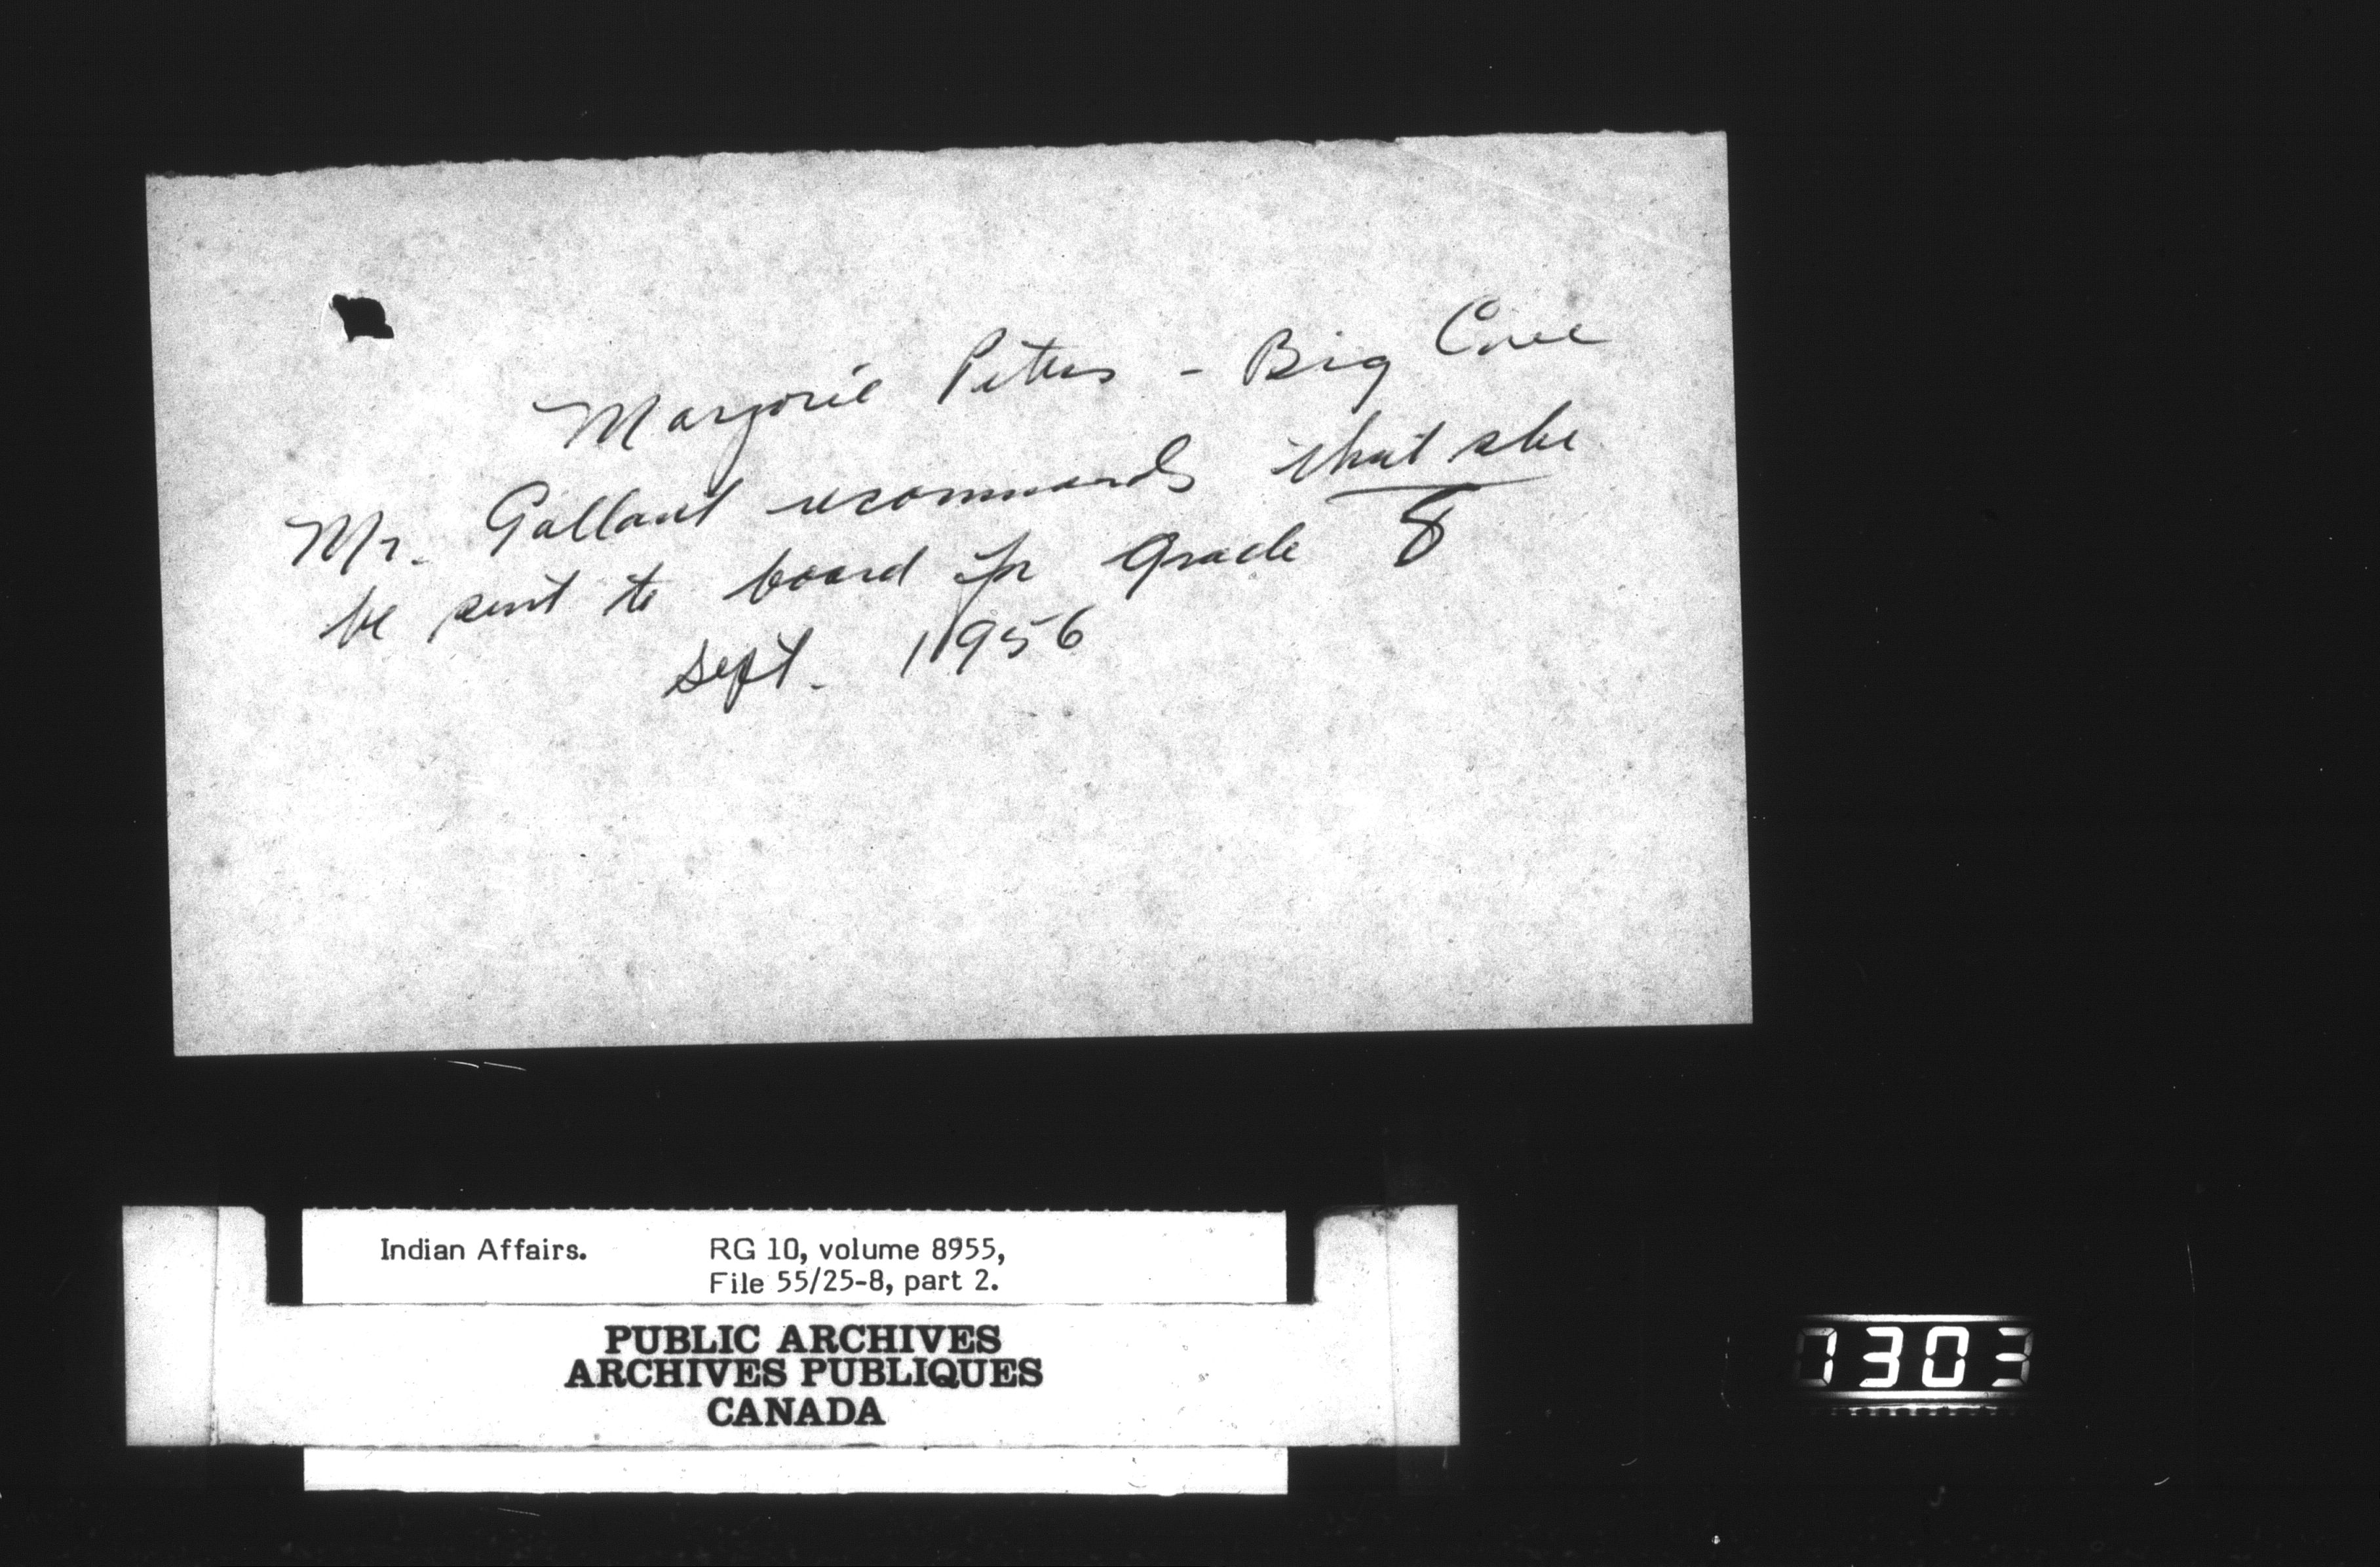 Marjorie Peters - Big Cove
Mr. Gallant recommends that she
be sent to board for Grade 8
Sept. 1956
Indian Affairs. RG 10, volume 8955,
File 55/25-8, part 2.
PUBLIC ARCHIVES
ARCHIVES PUBLIQUES
CANADA
7303